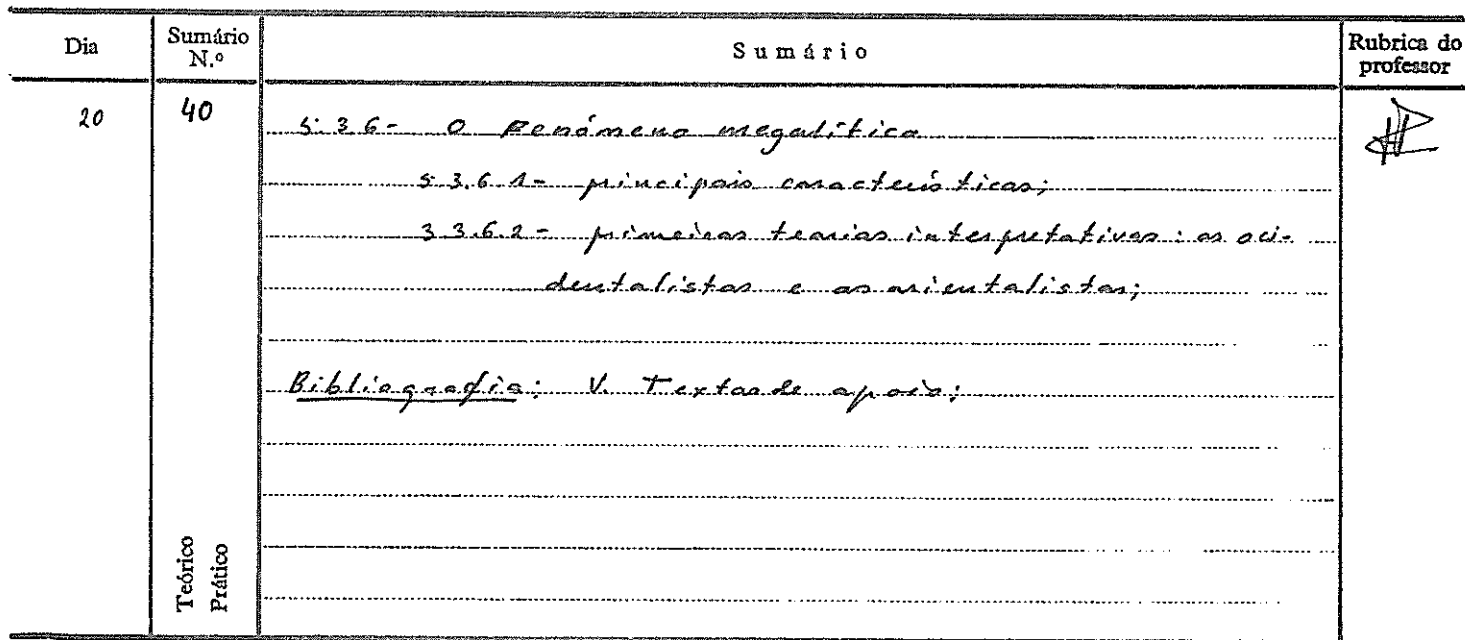 Dia
Sumário N.º
Sumário
Rubrica do professor
20
40
5.3.6- O Fenómeno megalítico
5.3.6.1- principais características;
3.3.6.2- primeiras teorias interpretativas: as oci-
dentalistas e as orientalistas;
Bibliografia: V. Textos de apoio;
Teórico
Prático